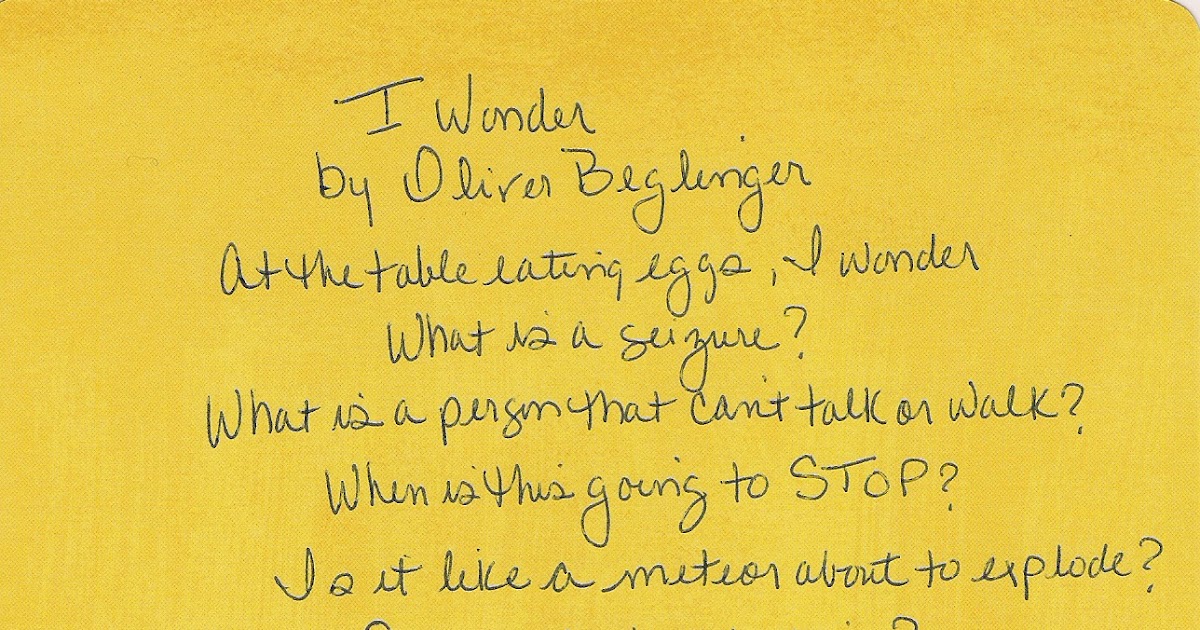 I Wonder
by Oliver Beglinger
At the table eating eggs, I wonder
What is a seizure?
What is a person that can't talk or walk?
When is this going to STOP?
Is it like a meteor about to explode?